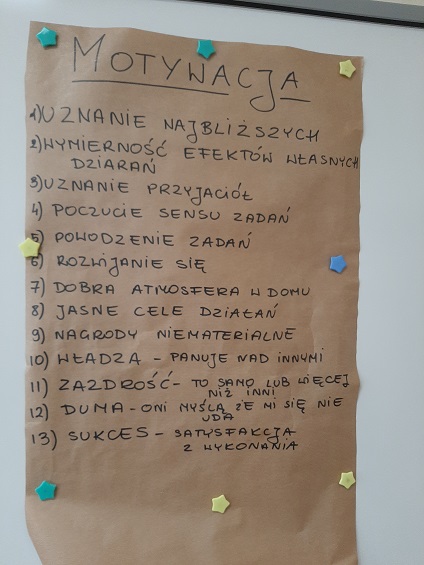 MOTYWACJA
1) UZNANIE NAJBLIŻSZYCH
2) WYMIERNOŚĆ EFEKTÓW WŁASNYCH
DZIARAŃ
3) UZNANIE PRZYJACIÓŁ
4) POCZUCIE SENSU ZADAŃ
5) POWODZENIE ZADAŃ
6) ROZWIJANIE SIĘ
7) DOBRA ATMOSFERA W DOMU
8) JASNE CELE DZIAŁAŃ
9) NAGRODY NIEMATERIALNE
10) WŁADZA - PANUJE NAD INNYMI
11) ZAZDROŚĆ - TO SAMO LUB WIĘCEJ
NIŻ INNI
12) DUMA - ONI MYŚLĄ ŻE MI SIĘ NIE
UDA
13) SUKCES - SATYSFAKCJA
Z WYKONANIA